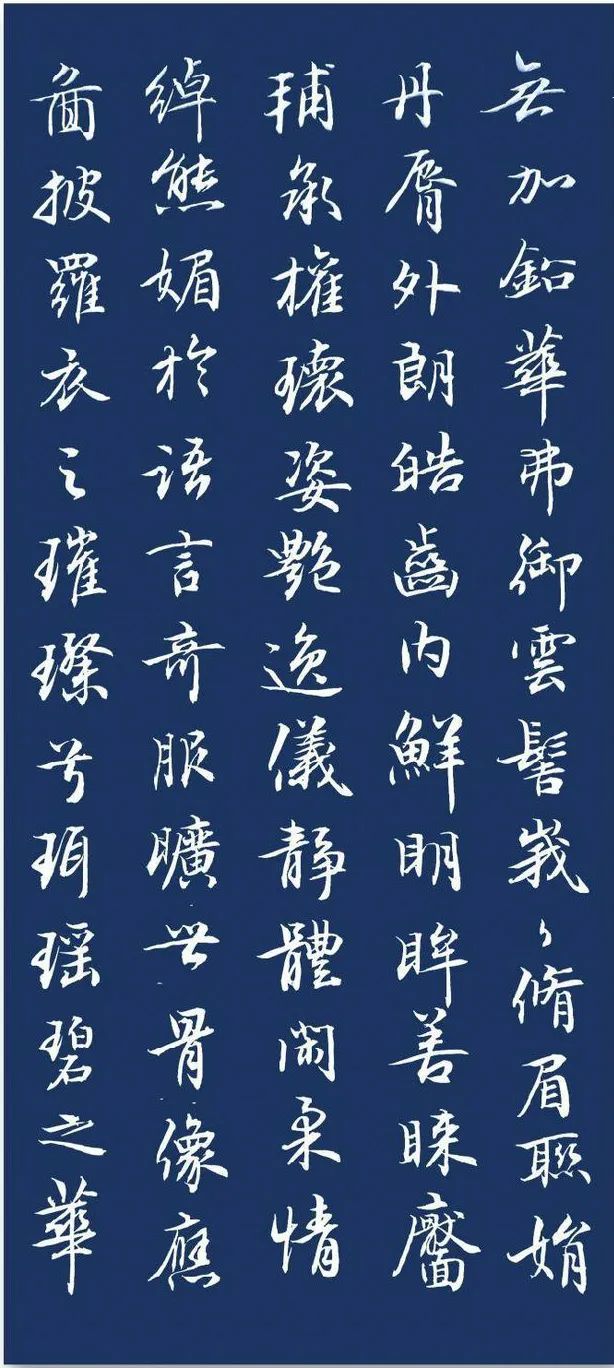 無加鉛華弗御雲髻峩々脩眉聯娟
丹脣外朗皓齒內鮮明眸善睞靨
輔承權瓌姿艷逸儀靜體閑柔情
綽態媚於語言奇服曠世骨像應
圖披羅衣之璀璨兮珥瑶碧之華